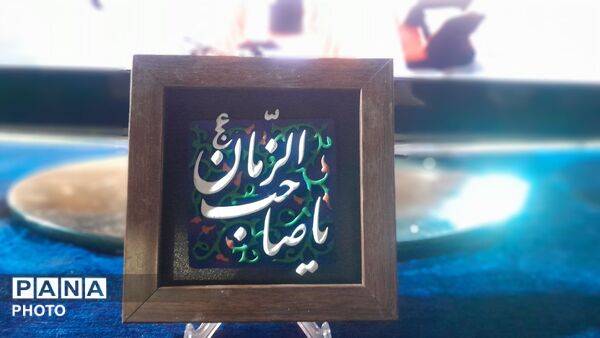 یا صاحب
الزّمان عج
PANA
PHOTO